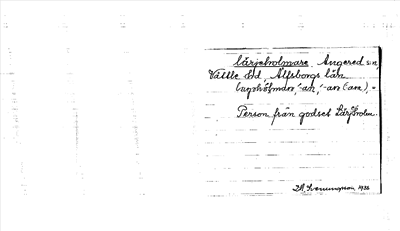 Lärjeholmare, Angered sn,
Vättle hd, Älfsborgs län.
-an, -an (-are), =
Person från godset Lärjeholm.
D.A. Svenungsson 1926